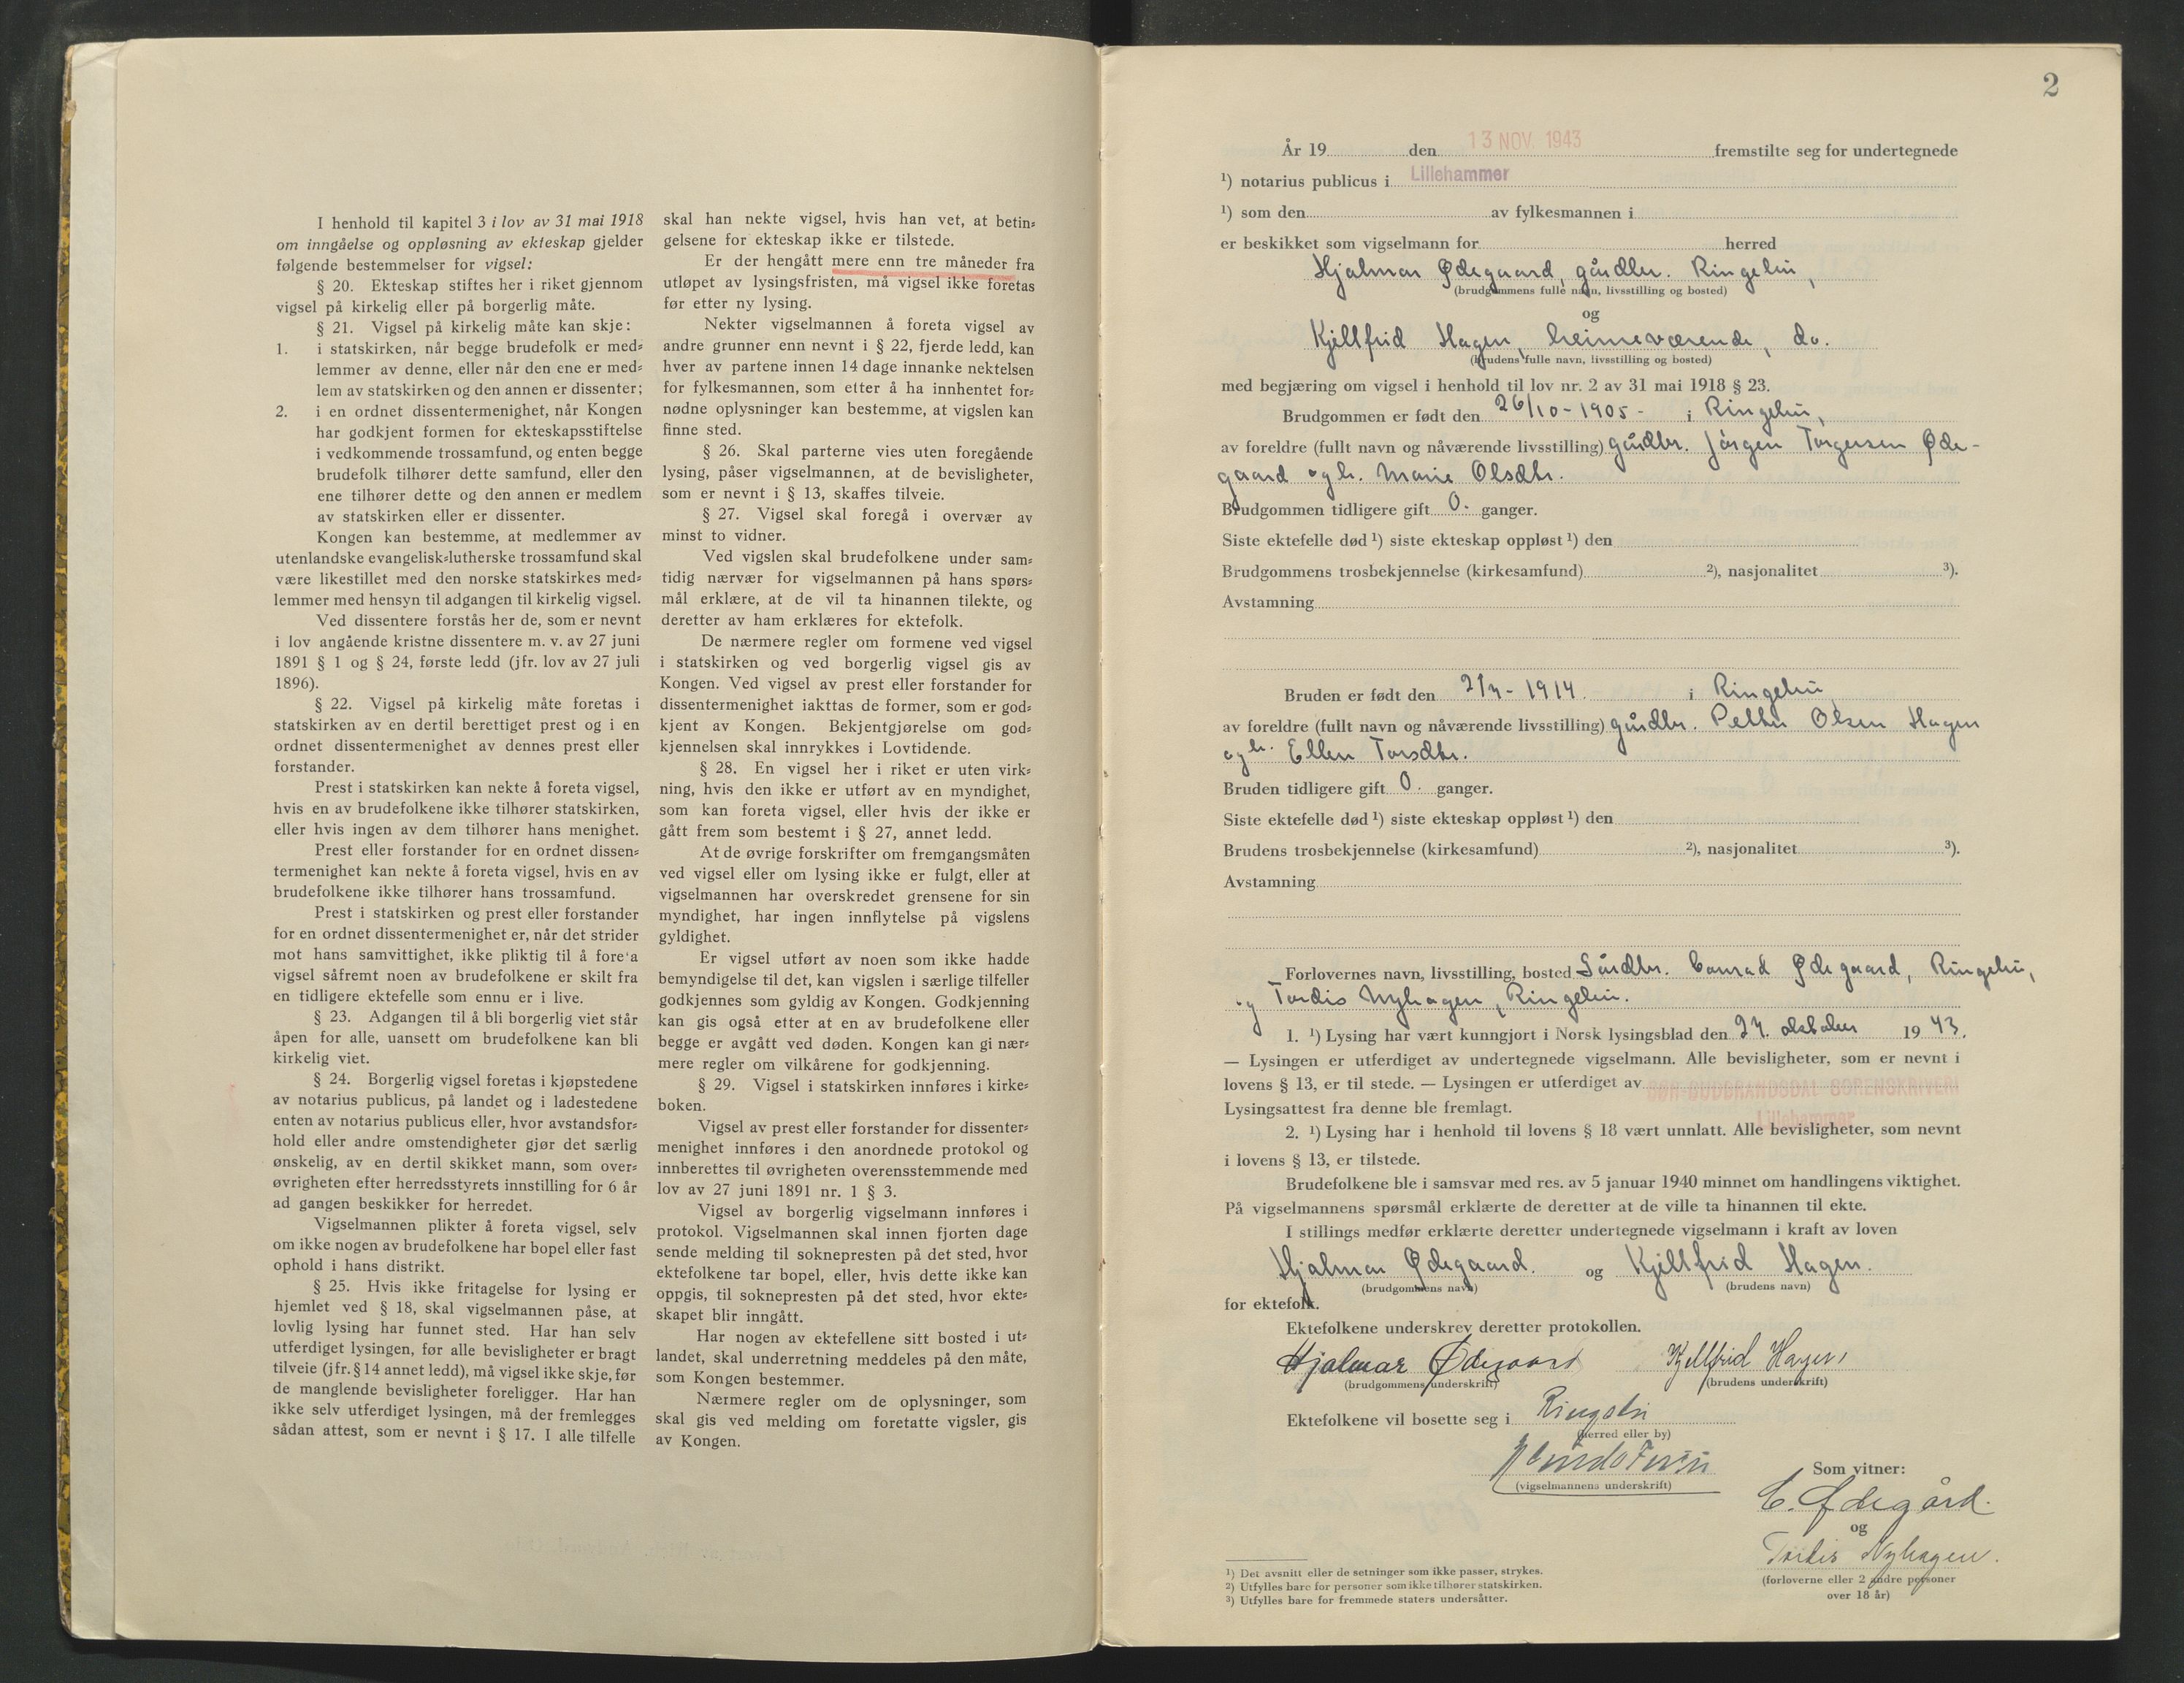 I henhold til kapitel 3 i lov av 31 mai 1918
om inngåelse og oppløsning av ekteskap gjelder
følgende bestemmelser for vigsel:
§ 20. Ekteskap stiftes her i riket gjennom
vigsel på kirkelig eller på borgerlig måte.
§ 21. Vigsel på kirkelig måte kan skje:
1. i statskirken, når begge brudefolk er med=
lemmer av denne, eller når den ene er med=
lem av statskirken og den annen er dissenter;
2. i en ordnet dissentermenighet, når Kongen
har godkjent formen for ekteskapsstiftelse
i vedkommende trossamfund, og enten begge
brudefolk tilhører dette samfund, eller den
ene tilhører dette og den annen er medlem
av statskirken eller er dissenter.
Kongen kan bestemme, at medlemmer av
utenlandske evangelisk=lutherske trossamfund skal
være likestillet med den norske statskirkes med=
lemmer med hensyn til adgangen til kirkelig vigsel.
Ved dissentere forstås her de, som er nevnt
i lov angående kristne dissentere m. v. av 27 juni
1891 § 1 og § 24, første ledd (jfr. lov av 27 juli
1896).
§ 22. Vigsel på kirkelig måte foretas i
statskirken av en dertil berettiget prest og i en
ordnet dissentermenighet av dennes prest eller
forstander.
Prest i statskirken kan nekte å foreta vigsel,
hvis en av brudefolkene ikke tilhører statskirken,
eller hvis ingen av dem tilhører hans menighet.
Prest eller forstander for en ordnet dissen=
termenighet kan nekte å foreta vigsel, hvis en av
brudefolkene ikke tilhører hans trossamfund.
Prest i statskirken og prest eller forstander
for en ordnet dissentermenighet er, når det strider
mot hans samvittighet, ikke pliktig til å fore'a
vigsel såfremt noen av brudefolkene er skilt fra
en tidligere ektefelle som ennu er i live.
§ 23. Adgangen til å bli borgerlig viet står
åpen for alle, uansett om brudefolkene kan bli
kirkelig viet.
§ 24. Borgerlig vigsel foretas i kjøpstedene
av notarius publicus, på landet og i ladestedene
enten av notarius publicus eller, hvor avstandsfor=
hold eller andre omstendigheter gjør det særlig
ønskelig, av en dertil skikket mann, som over=
øvrigheten efter herredsstyrets innstilling for 6 år
ad gangen beskikker for herredet.
Vigselmannen plikter å foreta vigsel, selv
om ikke nogen av brudefolkene har bopel eller fast
ophold i hans distrikt.
§ 25. Hvis ikke fritagelse for lysing er
hjemlet ved § 18, skal vigselmannen påse, at
lovlig lysing har funnet sted. Har han selv
utferdiget lysingen, før alle bevisligheter er bragt
tilveie (jfr. § 14 annet ledd), må vigsel ikke skje, før
de manglende bevisligheter foreligger. Har han
ikke selv utferdiget lysingen, må der fremlegges
sådan attest, som er nevnt i § 17. I alle tilfelle
skal han nekte vigsel, hvis han vet, at betin=
gelsene for ekteskap ikke er tilstede.
Er der hengått mere enn tre måneder fra
utløpet av lysingsfristen, må vigsel ikke foretas
før etter ny lysing.
Nekter vigselmannen å foreta vigsel av
andre grunner enn nevnt i § 22, fjerde ledd, kan
hver av partene innen 14 dage innanke nektelsen
for fylkesmannen, som etter å ha innhentet for=
nødne oplysninger kan bestemme, at vigslen kan
finne sted.
§ 26. Skal parterne vies uten foregående
lysing, påser vigselmannen, at de bevisligheter,
som er nevnt i § 13, skaffes tilveie.
§ 27. Vigsel skal foregå i overvær av
minst to vidner.
Ved vigslen skal brudefolkene under sam=
tidig nærvær for vigselmannen på hans spørs=
mål erklære, at de vil ta hinannen tilekte, og
deretter av ham erklæres for ektefolk.
De nærmere regler om formene ved vigsel
i statskirken og ved borgerlig vigsel gis av
Kongen. Ved vigsel av prest eller forstander for
dissentermenighet iakttas de former, som er god=
kjent av Kongen. Bekjentgjørelse om god=
kjennelsen skal innrykkes i Lovtidende.
§ 28. En vigsel her i riket er uten virk=
ning, hvis den ikke er utført av en myndighet,
som kan foreta vigsel, eller hvis der ikke er
gått frem som bestemt i § 27, annet ledd.
At de øvrige forskrifter om fremgangsmåten
ved vigsel eller om lysing ikke er fulgt, eller at
vigselmannen har overskredet grensene for sin
myndighet, har ingen innflytelse på vigslens
gyldighet.
Er vigsel utført av noen som ikke hadde
bemyndigelse til det, kan vigslen i særlige tilfeller
godkjennes som gyldig av Kongen. Godkjenning
kan gis også etter at en av brudefolkene eller
begge er avgått ved døden. Kongen kan gi nær=
mere regler om vilkårene for godkjenning.
§ 29. Vigsel i statskirken innføres i kirke=
boken.
Vigsel av prest eller forstander for dissenter=
menighet innføres i den anordnede protokol og
innberettes til øvrigheten overensstemmende med
lov av 27 juni 1891 nr. 1 § 3.
Vigsel av borgerlig vigselmann innføres i
protokol. Vigselmannen skal innen fjorten dage
sende melding til soknepresten på det sted, hvor
ektefolkene tar bopel, eller, hvis dette ikke kan
oppgis, til soknepresten på det sted, hvor ekte=
skapet blir inngått.
Har nogen av ektefellene sitt bosted i ut=
landet, skal underretning meddeles på den måte,
som Kongen bestemmer.
Nærmere regler om de oplysninger, som
skal gis ved melding om foretatte vigsler, gis
av Kongen.
2
År 19 den 13 NOV. 1943 fremstilte seg for undertegnede
¹) notarius publicus i Lillehammer
¹) som den av fylkesmannen i
er beskikket som vigselmann for herred
Hjalmar Ødegaard, gårdbr. Ringebu,
(brudgommens fulle navn, livsstilling og bosted)
og
Kjellfrid Hagen, heimeværende, do.
(brudens fulle navn, livsstilling og bosted)
med begjæring om vigsel i henhold til lov nr. 2 av 31 mai 1918 § 23.
Brudgommen er født den 26/10-1905- i Ringebu,
av foreldre (fullt navn og nåværende livsstilling) gårdbr. Jørgen Torgersen Øde-
gaard og h. Marie Olsdtr.
Brudgommen tidligere gift 0. ganger.
Siste ektefelle død ¹) siste ekteskap oppløst ¹) den
Brudgommens trosbekjennelse (kirkesamfund) ²), nasjonalitet ³).
Avstamning
Bruden er født den 2/7-1914. i Ringebu
av foreldre (fullt navn og nåværende livsstilling) gårdbr. Petter Olsen Hagen
og h. Ellen Torsdtr.
Bruden tidligere gift 0. ganger.
Siste ektefelle død ¹) siste ekteskap oppløst ¹) den
Brudens trosbekjennelse (kirkesamfund) ²), nasjonalitet ³).
Avstamning
Forlovernes navn, livsstilling, bosted Gårdbr. Conrad Ødegaard, Ringebu,
og Tordis Nyhagen, Ringebu.
1. ¹) Lysing har vært kunngjort i Norsk lysingsblad den 27. oktober 1943.
— Lysingen er utferdiget av undertegnede vigselmann. Alle bevisligheter, som er nevnt i
lovens § 13, er til stede. — Lysingen er utferdiget av SØR-GUDBRANDSDAL SORENSKRIVERI
Lillehammer
Lysingsattest fra denne ble fremlagt.
2. ¹) Lysing har i henhold til lovens § 18 vært unnlatt. Alle bevisligheter, som nevnt
i lovens § 13, er tilstede.
Brudefolkene ble i samsvar med res. av 5 januar 1940 minnet om handlingens viktighet.
På vigselmannens spørsmål erklærte de deretter at de ville ta hinannen til ekte.
I stillings medfør erklærte deretter undertegnede vigselmann i kraft av loven
Hjalmar Ødegaard. og Kjellfrid Hagen.
(brudgommens navn) (brudens navn)
for ektefolk.
Ektefolkene underskrev deretter protokollen.
Hjalmar Ødegaard Kjellfrid Hagen
(brudgommens underskrift) (brudens underskrift)
Ektefolkene vil bosette seg i Ringebu
(herred eller by)
(vigselmannens underskrift)
Som vitner:
C. Ødegård.
og
Tordis Nyhagen.
(forloverne eller 2 andre personer
over 18 år)
¹) Det avsnitt eller de setninger som ikke passer, strykes.
²) Utfylles bare for personer som ikke tilhører statskirken.
³) Utfylles bare for fremmede staters undersåtter.